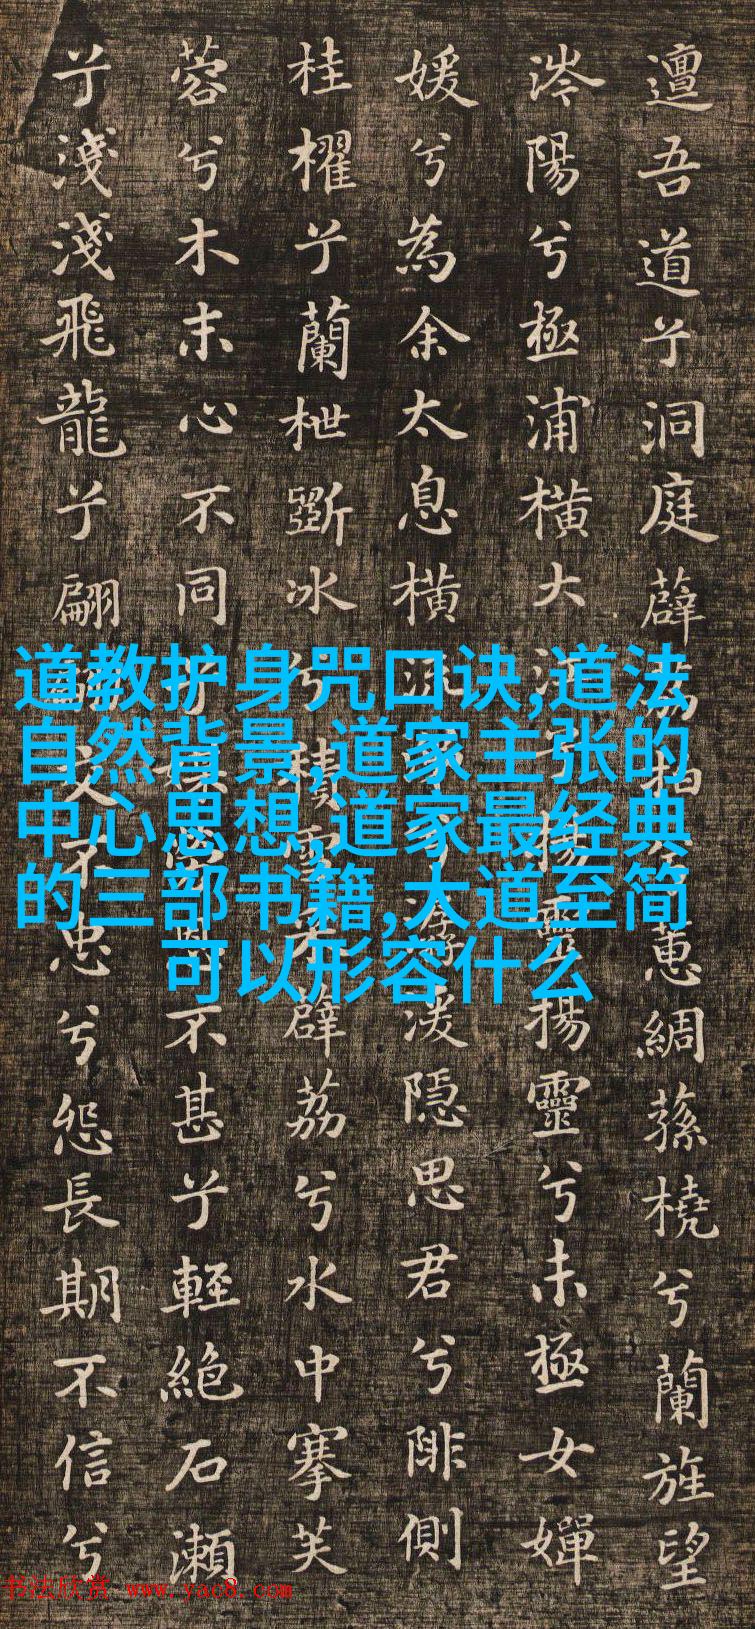 邅吾道兮洞庭薜荔拍兮蕙綢蓀橈兮蘭旌望
涔陽兮極浦橫大江兮揚靈揚靈兮未極女嬋
媛兮為余太息橫流兮潺湲隱思君兮陫側
桂櫂兮蘭枻斲冰兮積雪采薜荔兮水中搴芙
蓉兮木末心不同兮媒勞不甚兮輕絕石瀨
兮淺淺飛龍兮翩翩交不忠兮怨長期不信兮
道教护身咒口诀,道法
自然背景,道家主张的
中心思想,道家最经典
的三部书籍,大道至简
可以形容什么
书法欣赏 www.yac8.com